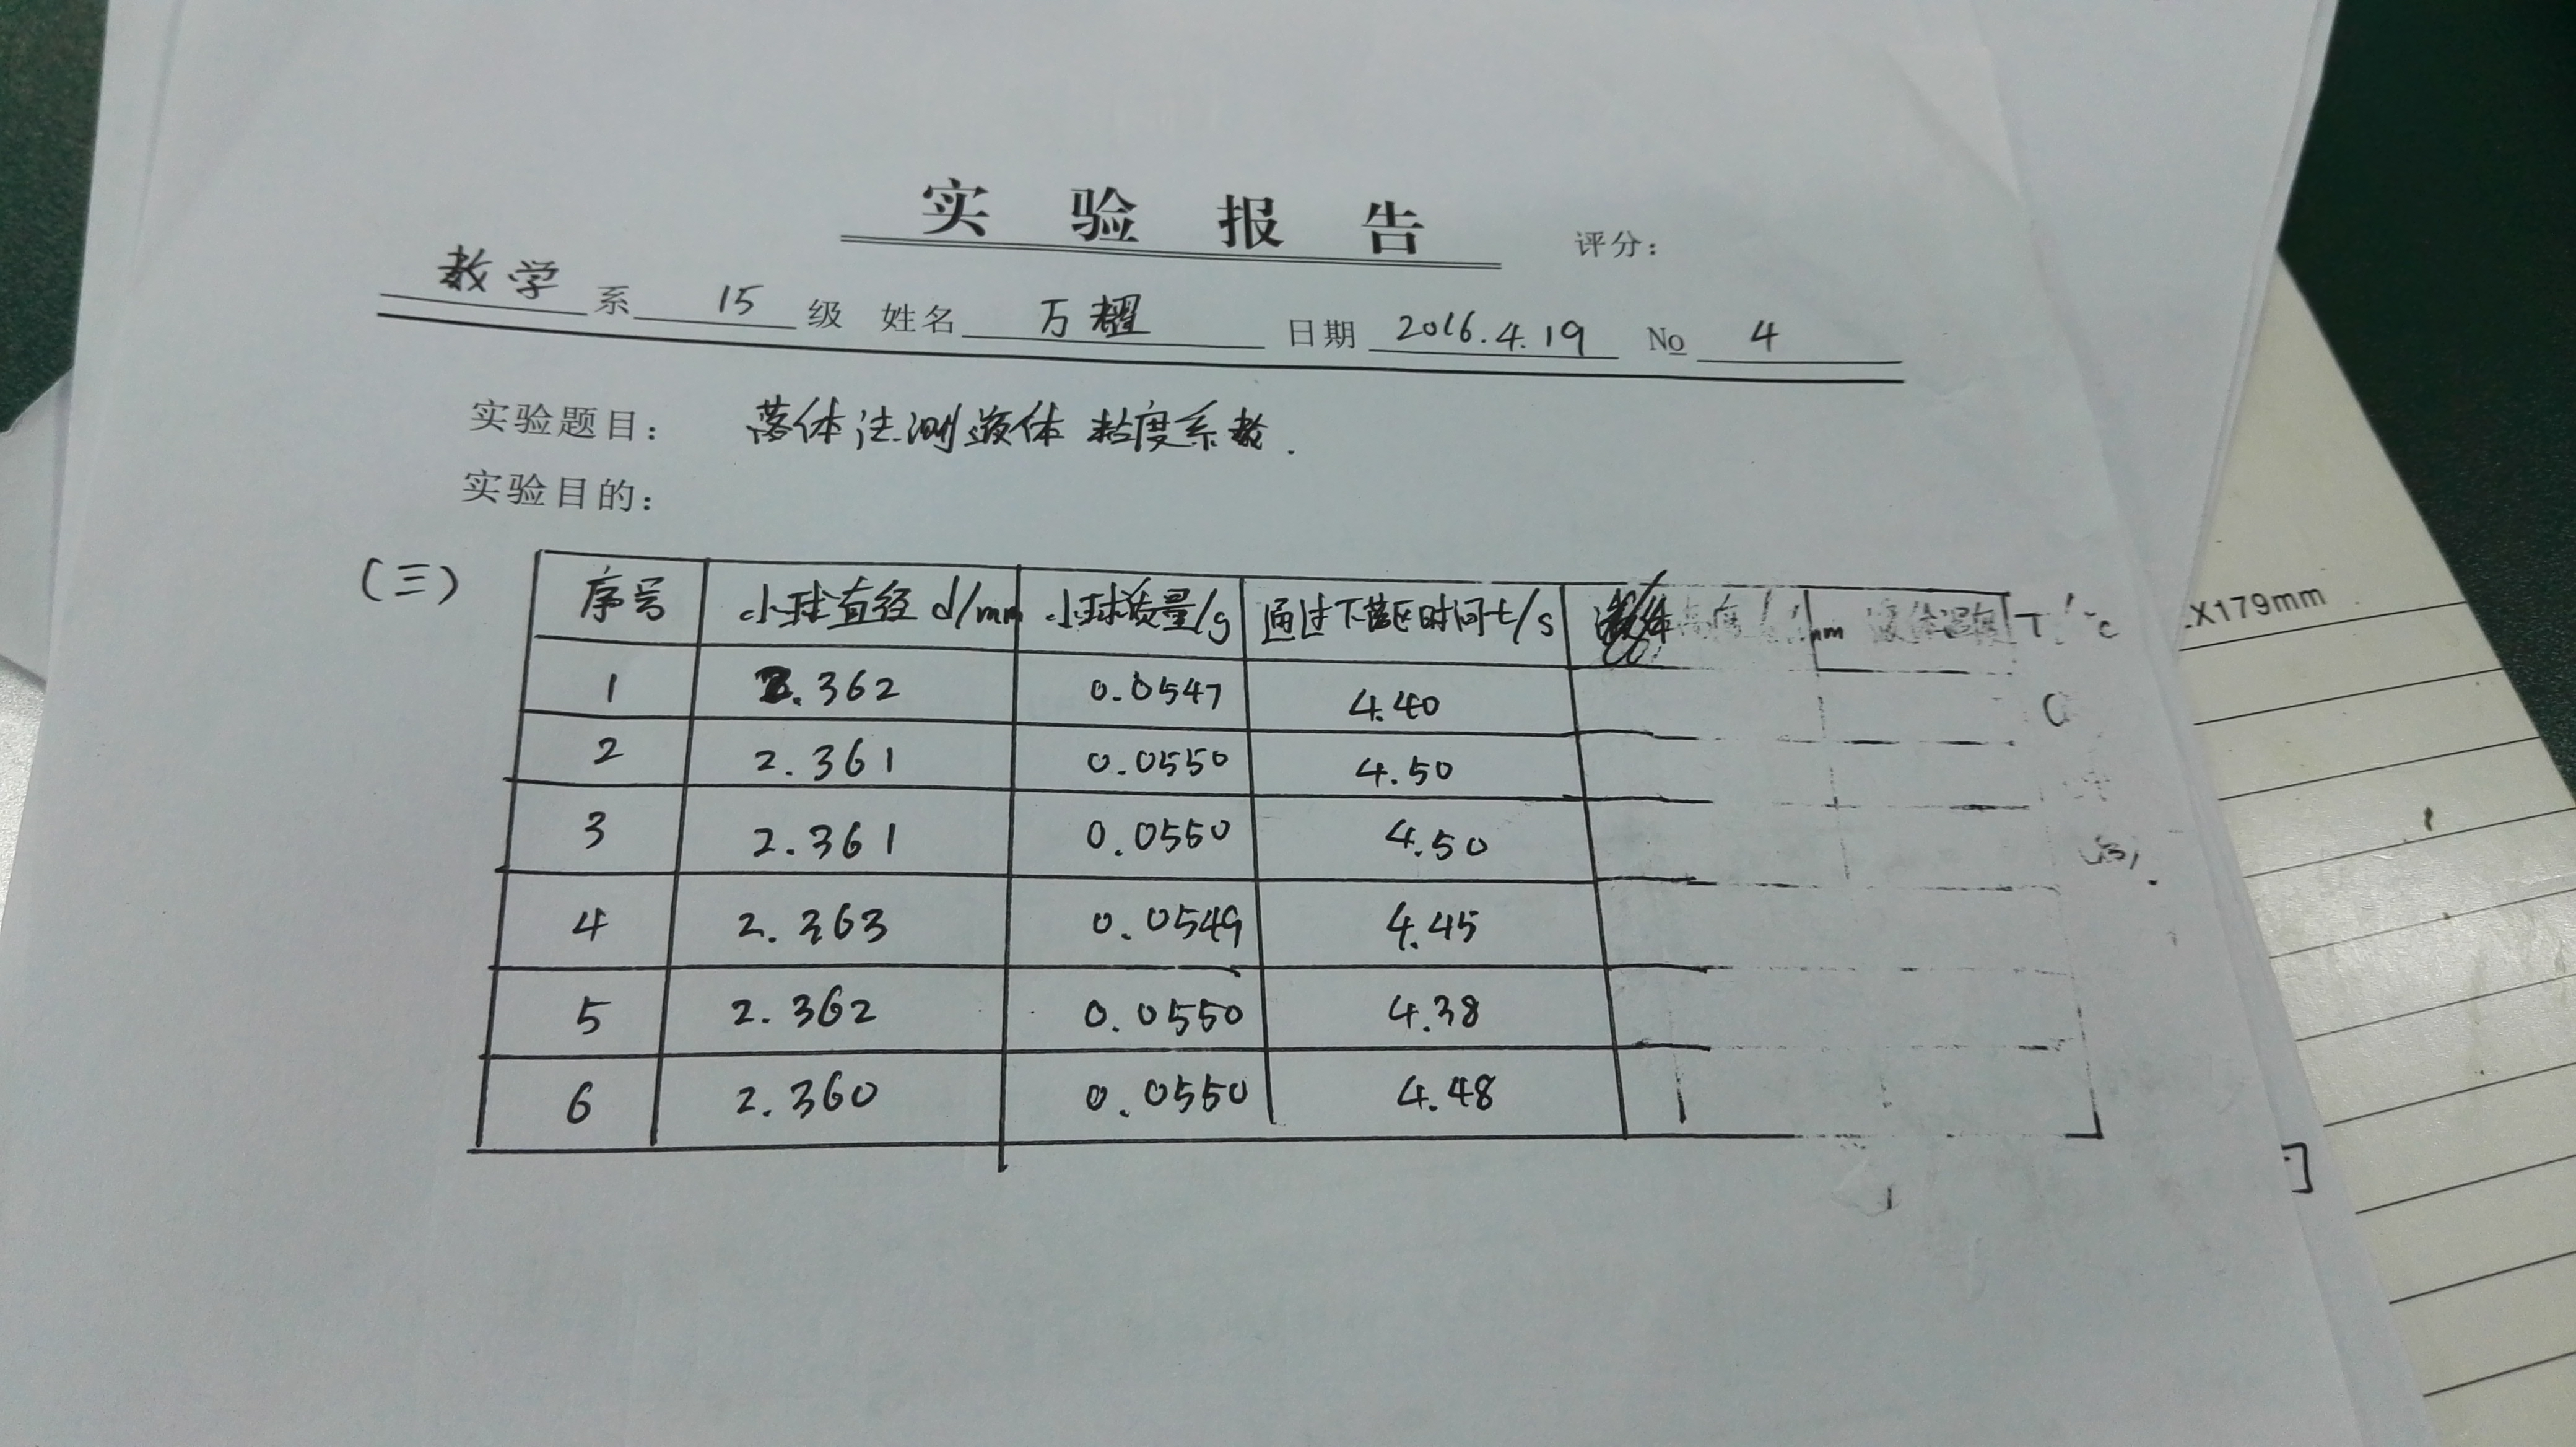 实验报告
评分:
数学系 15 级 姓名 万耀 日期 2016.4.19 No 4
实验题目: 落体法测液体粘度系数.
实验目的:
X179mm
(三)
序号 小球直径 d/mm 小球质量/g 通过下落区时间t/s 液体温度 T/℃
1 2.362 0.0547 4.40
2 2.361 0.0550 4.50
3 2.361 0.0550 4.50
4 2.363 0.0549 4.45
5 2.362 0.0550 4.38
6 2.360 0.0550 4.48